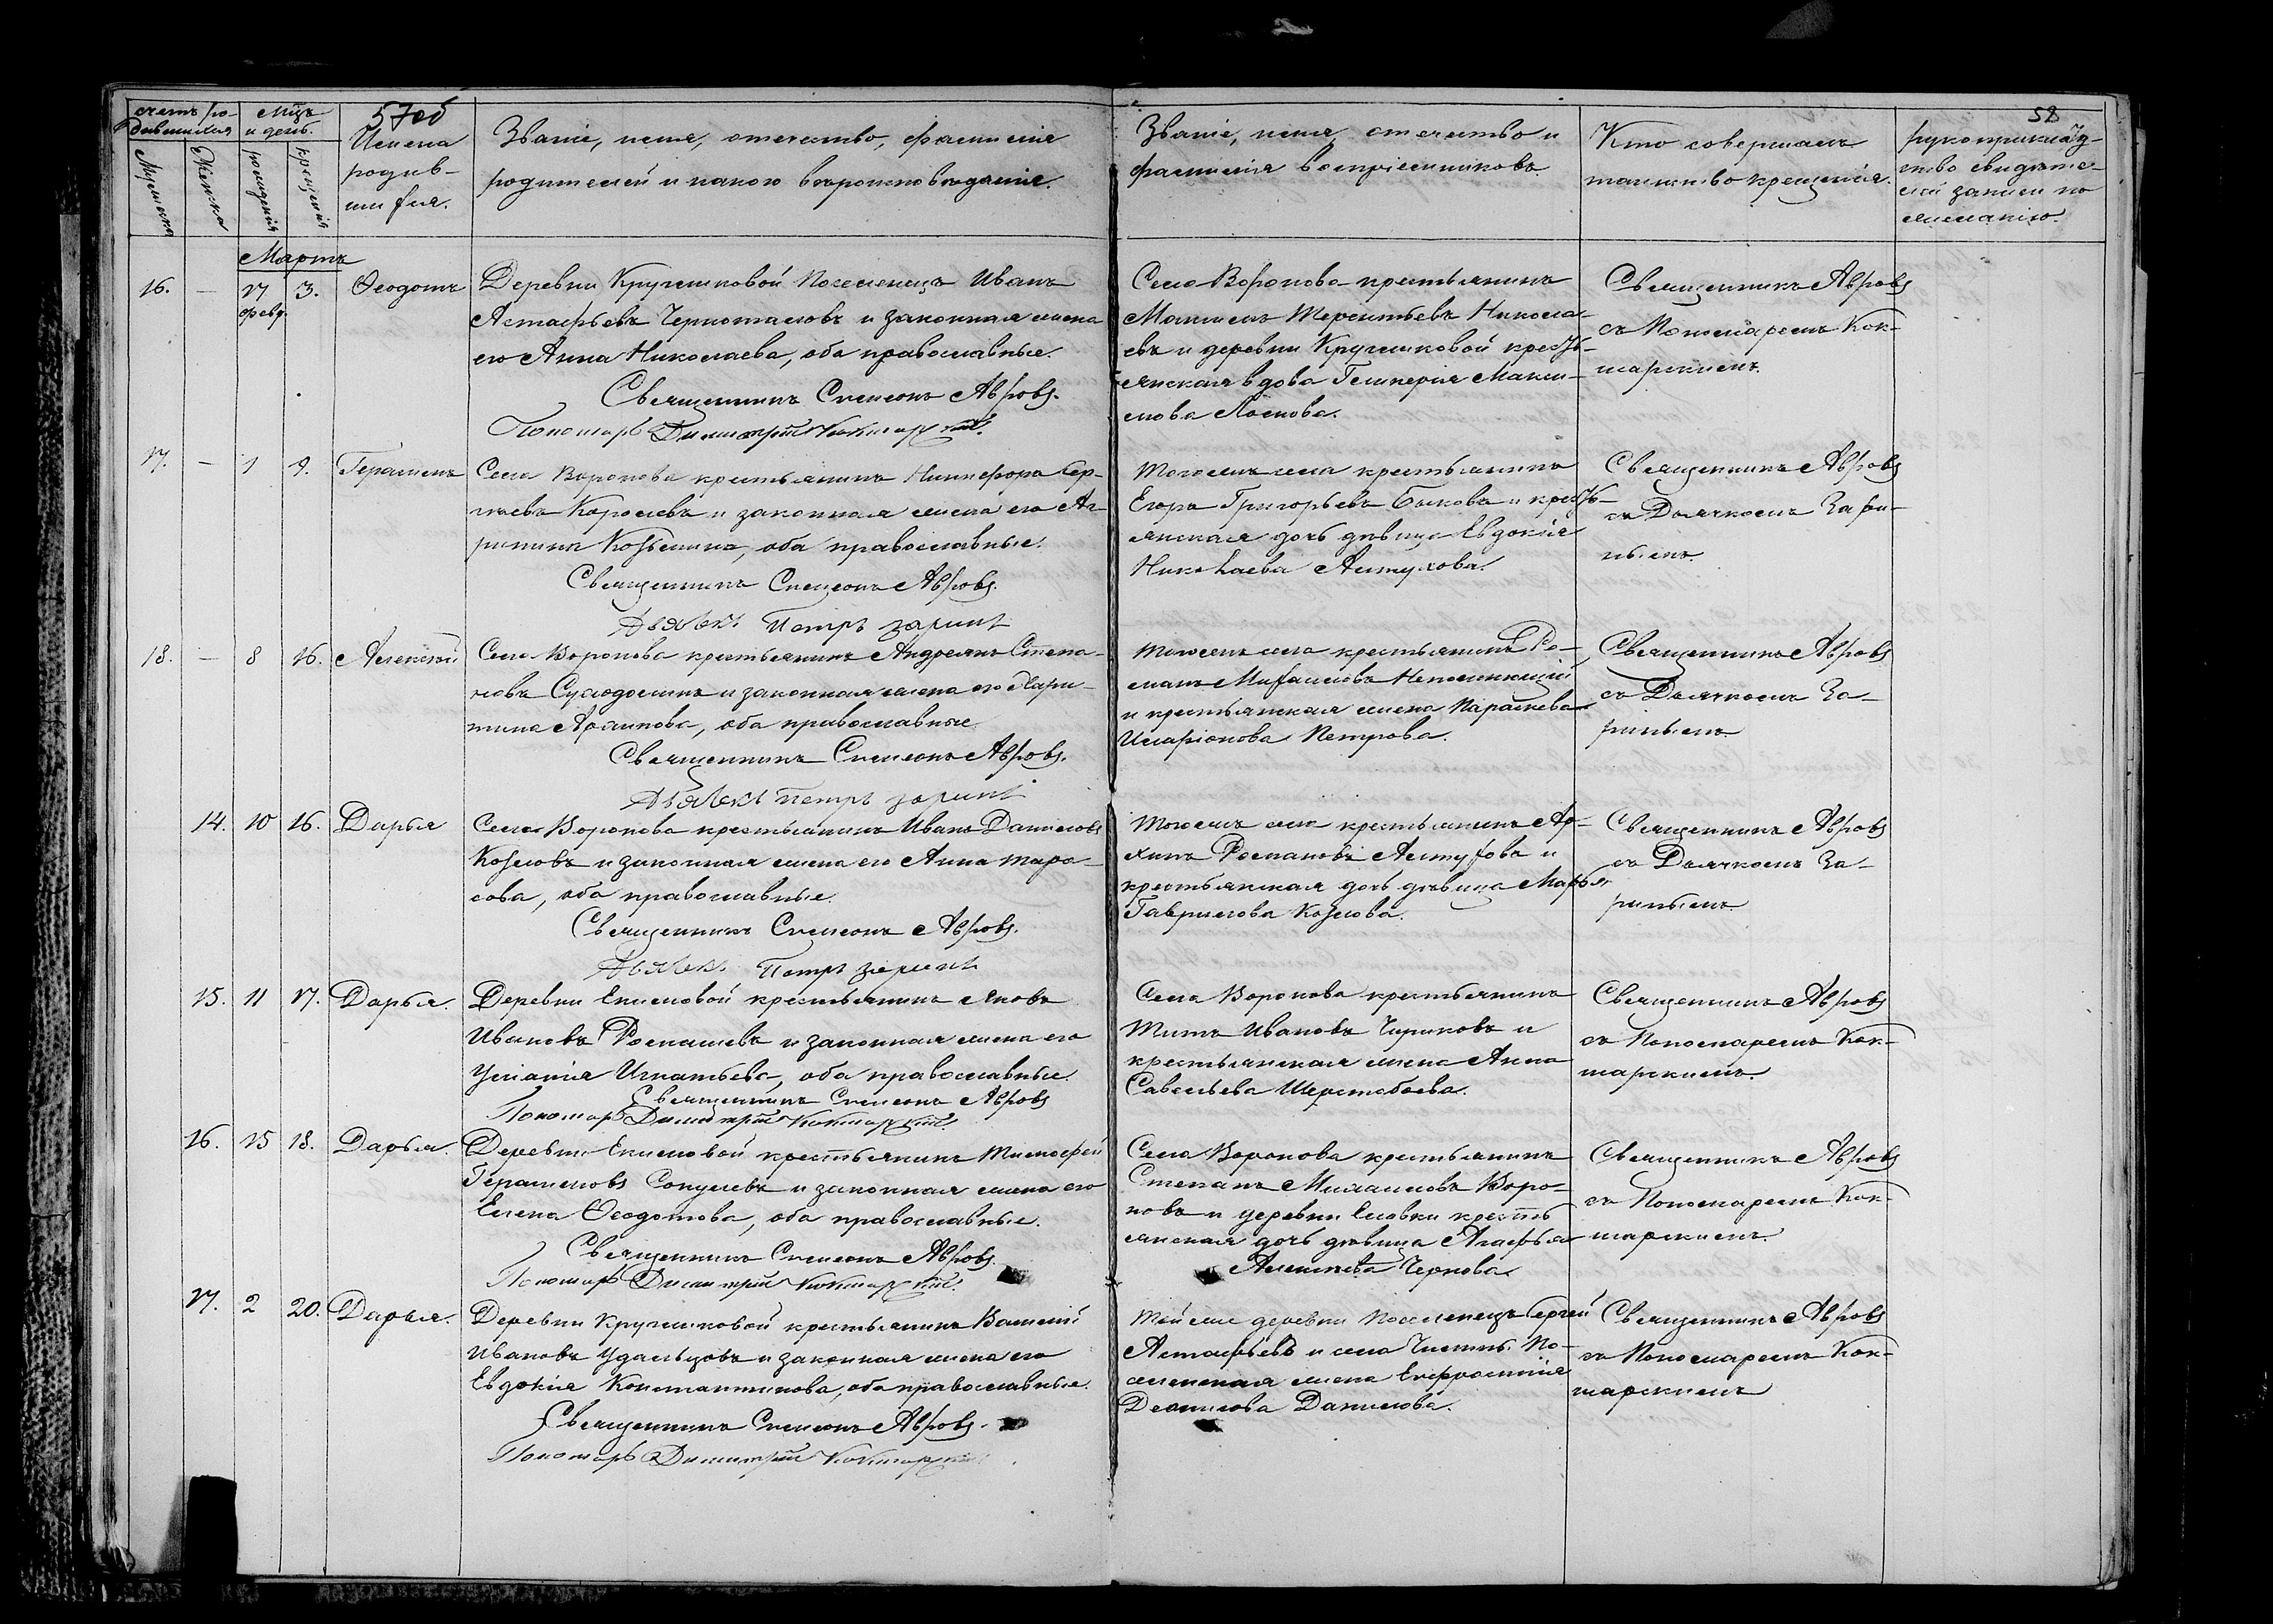 57об
58
счетъ ро-
дившихся
Мѣсяцъ
и день.
Имена
родив-
шихся.
Званіе, имя, отечество, фамилія
родителей и какого вѣроисповѣданія.
Званіе, имя, отечество и
фамилія воспріемниковъ
Кто совершалъ
таинство крещенія.
рукоприклад-
ство свидѣте-
лей записи по
желанію.
Мужеска
Женска
рожденія
крещенія
Мартъ
16. — 17 февр. 3. Ѳеодотъ
Деревни Кругликовой Поселенецъ Иванъ
Астафьевъ и законная жена
его Анна Николаева, оба православные.
Священникъ Симеонъ Авровъ.
Пономарь Димитрій Кокшарскій.
Села Воронова крестьянинъ
Терентьевъ Никола-
евъ и деревни Кругликовой кресть-
янская вдова Гликерія Макси-
мова
Священникъ Авровъ
съ Пономаремъ Кок-
шарскимъ.
17. — 1 9. Герасимъ
Села Воронова крестьянинъ Никифоръ Сер-
гѣевъ Королевъ и законная жена его Аг-
рипина Козьмина, оба православные.
Священникъ Симеонъ Авровъ.
Дьячекъ Петръ Заринъ
Тогоже села крестьянинъ
Егоръ Григорьевъ Быковъ и кресть-
янская дочь дѣвица Евдокія
Николаева Алтухова.
Священникъ Авровъ
съ Дьячкомъ Зари-
нымъ.
18. — 8 16. Алексѣй
Села Воронова крестьянинъ Андреянъ Степа-
новъ и законная жена его Хари-
тина Архипова, оба православные.
Священникъ Симеонъ Авровъ.
Дьячекъ Петръ Заринъ
Тогоже села крестьянинъ Ро-
манъ Михайловъ Непомнющій
и крестьянская жена Параскева
Иларіонова Петрова.
Священникъ Авровъ
съ Дьячкомъ За-
ринымъ
14. 10 16. Дарья
Села Воронова крестьянинъ Иванъ Даниловъ
Козловъ и законная жена его Анна Тара-
сова, оба православные.
Священникъ Симеонъ Авровъ.
Дьячекъ Петръ Заринъ
Тогоже села крестьянинъ Ар-
хипъ Романовъ Алтуховъ и
крестьянская дочь дѣвица Марья
Гаврилова Козлова.
Священникъ Авровъ
съ Дьячкомъ За-
ринымъ.
15. 11 17. Дарья.
Деревни Екимовой крестьянинъ Яковъ
Ивановъ Ромашевъ и законная жена его
Уліанія Игнатьева, оба православные.
Священникъ Симеонъ Авровъ
Пономарь Димитрій Кокшарскій.
Села Воронова крестьянинъ
Титъ Ивановъ Чириковъ и
крестьянская жена Анна
Савельева Шерстобоева.
Священникъ Авровъ
съ Пономаремъ Кок-
шарскимъ.
16. 15 18. Дарья.
Деревни Екимовой крестьянинъ Тимофей
Герасимовъ и законная жена его
Елена Ѳеодотова, оба православные.
Священникъ Симеонъ Авровъ.
Пономарь Димитрій Кокшарскій.
Села Воронова крестьянинъ
Степанъ Михайловъ Воро-
новъ и деревни Еловки кресть
янская дочь дѣвица Агафья
Алексѣева Чернова.
Священникъ Авровъ
съ Пономаремъ Кок-
шарскимъ.
17. 2 20. Дарья.
Деревни Кругликовой крестьянинъ Василій
Ивановъ Удальцовъ и законная жена его
Евдокія Константинова, оба православные.
Священникъ Симеонъ Авровъ.
Пономарь Димитрій Кокшарскій
Той же деревни Поселенецъ Сергей
Астафьевъ и села По-
селенская жена Евфросинія
Данилова.
Священникъ Авровъ
съ Пономаремъ Кок-
шарскимъ